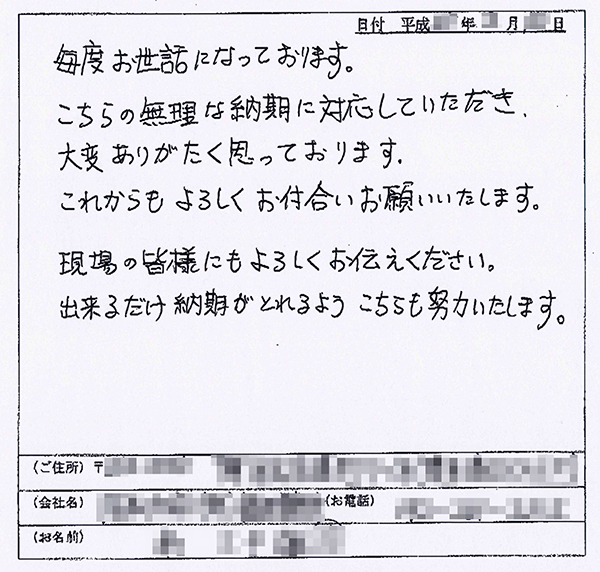 日付 平成 年 月 日
毎度お世話になっております。
こちらの無理な納期に対応していただき、
大変ありがたく思っております。
これからもよろしくお付合いお願いいたします。
現場の皆様にもよろしくお伝えください。
出来るだけ納期がとれるようこちらも努力いたします。
(ご住所) 〒
(会社名) (お電話)
(お名前)